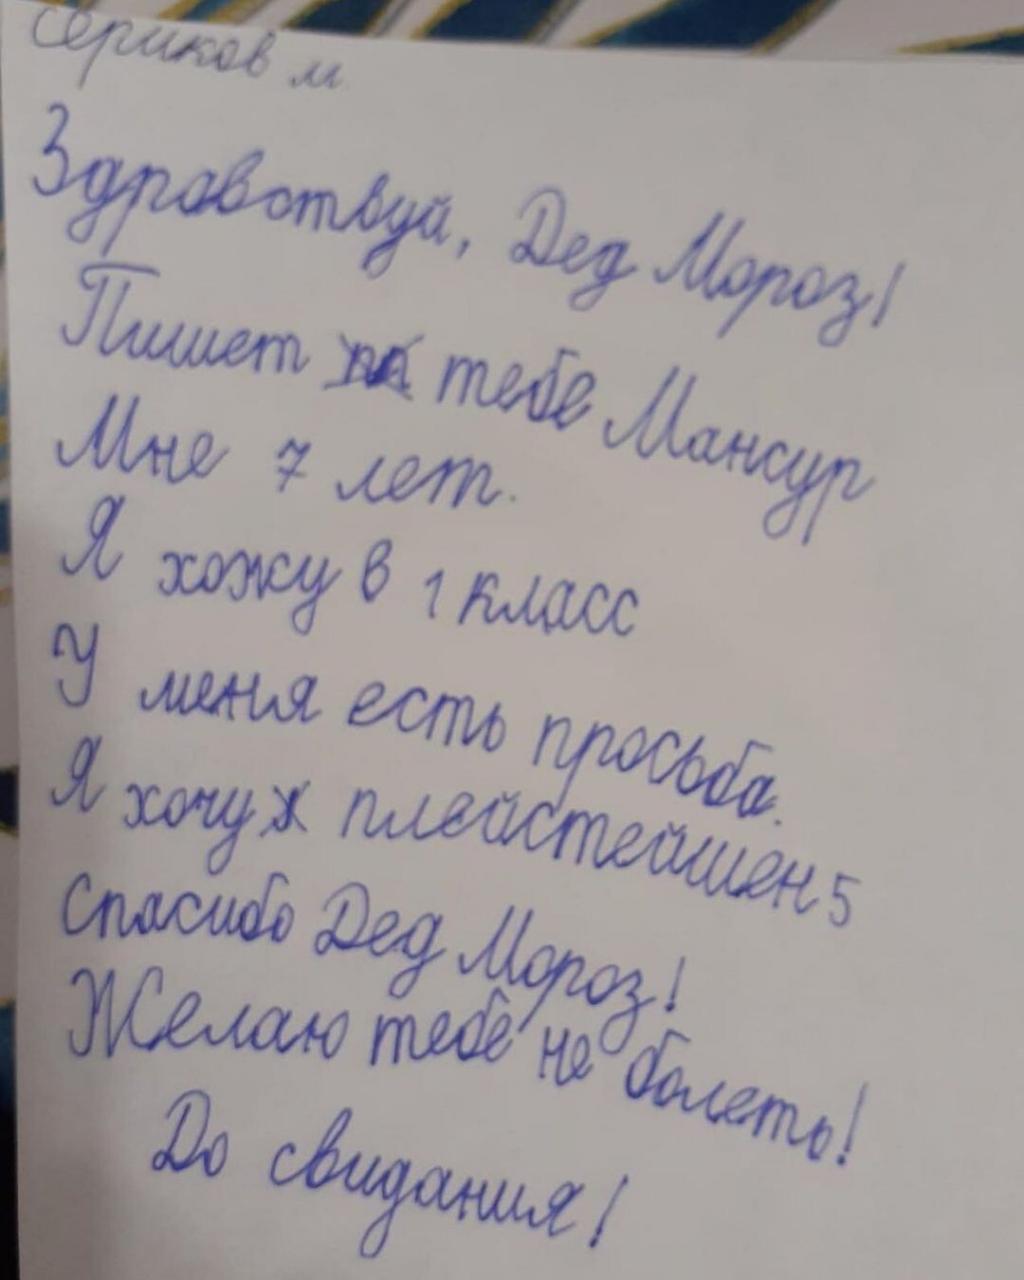 Сериков м
Здравствуй, Дед Мороз!
Пишет тебе Мансур
Мне 7 лет.
Я хожу в 1 класс
У меня есть просьба.
Я хочу плейстейшен 5
Спасибо Дед Мороз!
Желаю тебе не болеть!
До свидания!